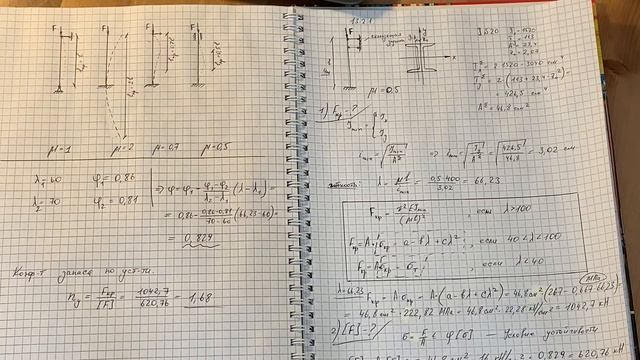 F
F
F
F
μ=1
μ=2
μ=0,7
μ=0,5
λ₁=60 φ₁=0,86
λ₂=70 φ₂=0,81
⇒ φ=φ₁-(φ₁-φ₂)/(λ₂-λ₁)(λ-λ₁)=
=0,86-(0,86-0,81)/(70-60)(66,23-60)=
=0,829
Коэф-т запаса по уст-ти.
n_y=F_кр/[F]=1042,7/620,76=1,68
F
x
μ=0,5
= 426,5 см⁴
A^Σ=46,8 см²
1) F_кр-?
i_min=√(J_min/A^Σ) ⇒ i_min=√(J_y^Σ/A^Σ)=√(426,5/46,8)=3,02 см
Гибкость: λ=μl/i_min=0,5·400/3,02=66,23
F_кр=π²EJ_min/(μl)², если λ>100
F_кр=A·σ_кр=a-bλ+cλ², если 40<λ<100
F_кр=Aσ_кр=σ_т, если λ<40
λ=66,23
F_кр=Aσ_кр=A·(a-bλ+cλ²)=46,8см²(267-0,667·66,23)=
(МПа)
=46,8см²·222,82 МПа=46,8см²·22,28 кН/см²=1042,7 кН
2) [F]-?
σ=F/A≤φ[σ] — Условие устойчивости
=0,829=620,76 кН